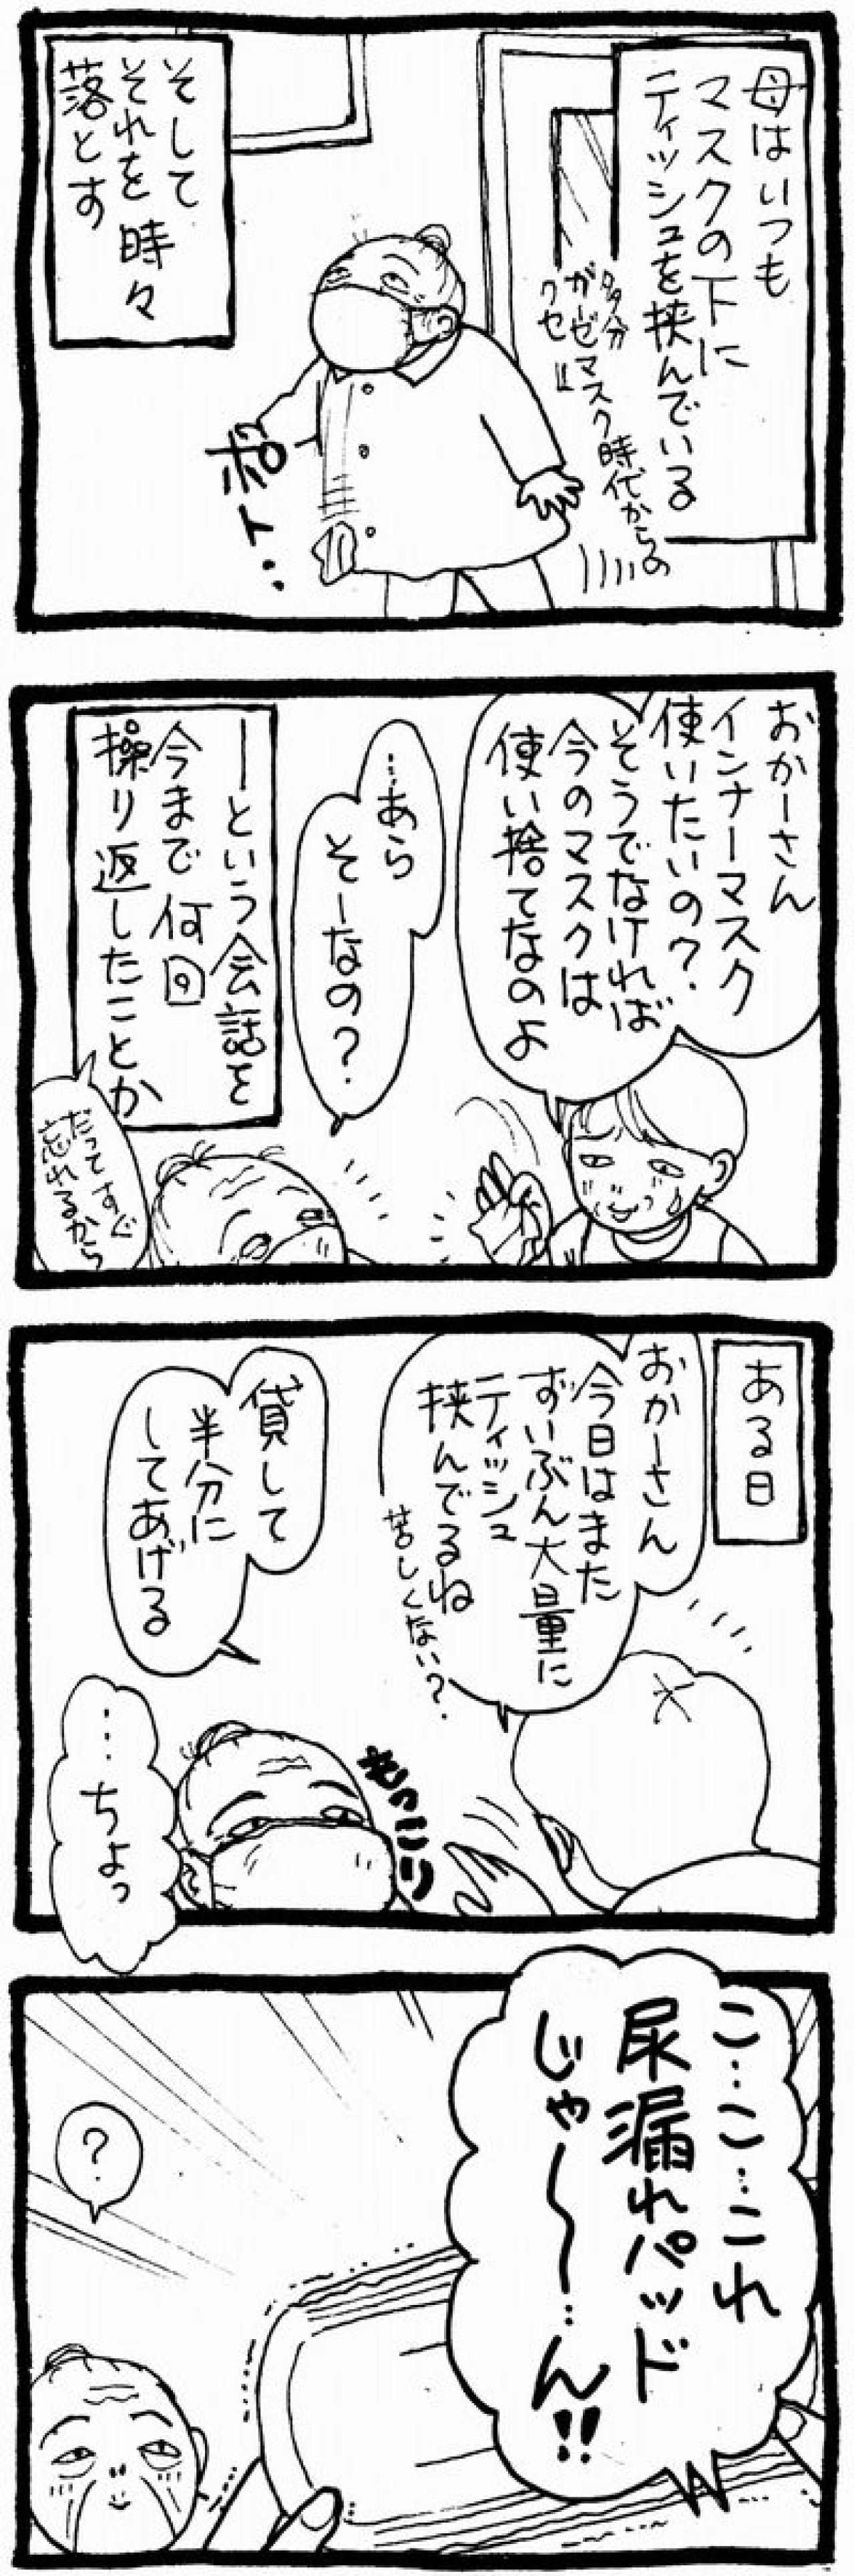 母はいつも
マスクの下に
ティッシュを挟んでいる
多分
ガーゼマスク時代からの
クセ!!
そして
それを時々
落とす
ポト‥
おかーさん
インナーマスク
使いたいの?
そうでなければ
今のマスクは
使い捨てなのよ
…あら
そーなの?
―という会話を
今まで何回
操り返したことか
だってすぐ
忘れるから
ある日
おかーさん
今日はまた
ずいぶん大量に
ティッシュ
挟んでるね
苦しくない?
貸して
半分に
してあげる
もっこり
…ちょっ
こ…こ…これ
尿漏れパッド
じゃ〜〜…ん!!
?